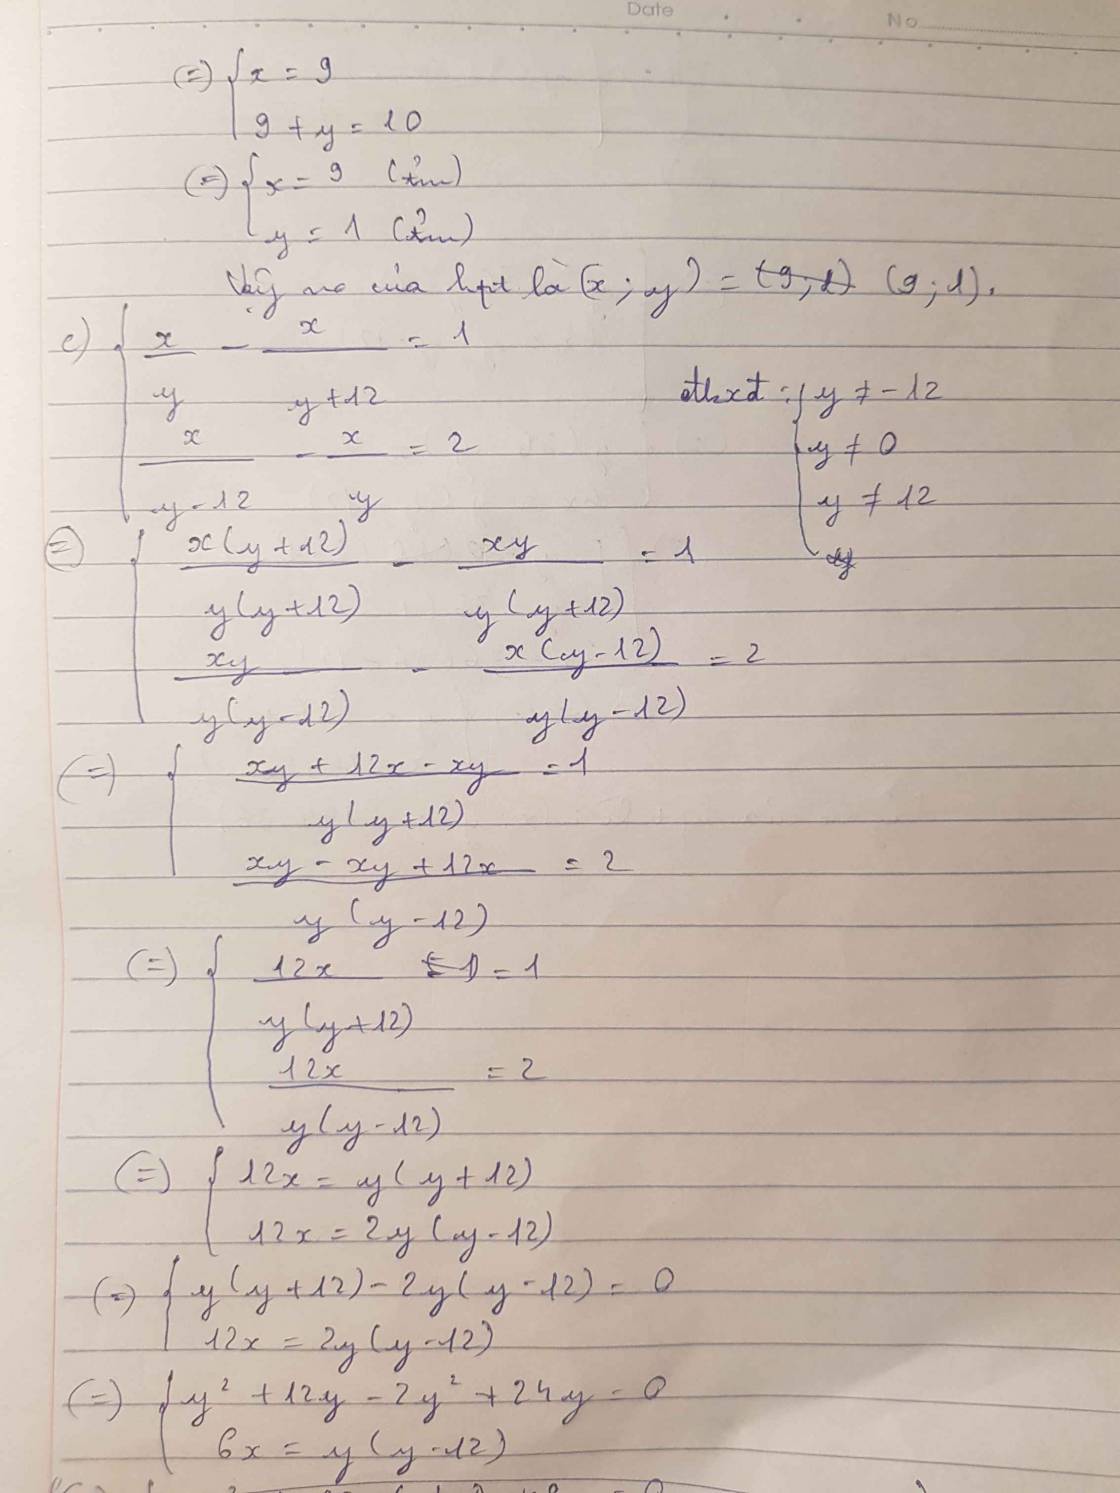 Date No
(=) { x = 9
9 + y = 10
(=) { x = 9 (tm)
y = 1 (tm)
Vậy no của hpt là (x ; y) = (9; 1) (9 ; 1).
c) { x/y - x/(y + 12) = 1
x/(y - 12) - x/y = 2
đkxđ : { y ≠ -12
y ≠ 0
y ≠ 12
y
(=) { x(y + 12)/y(y + 12) - xy/y(y + 12) = 1
xy/y(y - 12) - x(y - 12)/y(y - 12) = 2
(=) { (xy + 12x - xy)/y(y + 12) = 1
(xy - xy + 12x)/y(y - 12) = 2
(=) { 12x/y(y + 12) = 1
12x/y(y - 12) = 2
(=) { 12x = y(y + 12)
12x = 2y(y - 12)
(=) { y(y + 12) - 2y(y - 12) = 0
12x = 2y(y - 12)
(=) { y² + 12y - 2y² + 24y = 0
6x = y(y - 12)